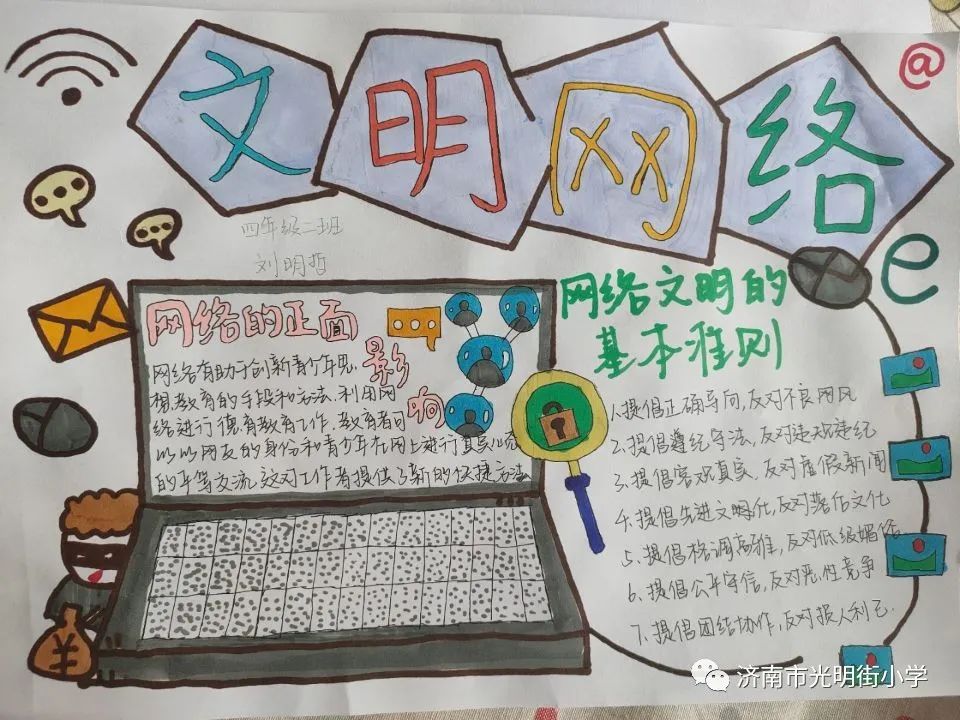 文明网络
@
四年级二班
刘明哲
e
网络的正面
影
响
网络有助于创新青少年思
想教育的手段和方法.利用网
络进行德育教育工作.教育者可
以以网友的身份和青少年在网上进行真实心态
的平等交流.这对工作者提供了新的快捷方法
网络文明的
基本准则
1、提倡正确导向,反对不良网风
2、提倡遵纪守法,反对违规违纪
3、提倡客观真实,反对虚假新闻
4、提倡先进文明化,反对落后文化
5、提倡格调高雅,反对低级媚俗
6、提倡公平守信,反对恶性竞争
7、提倡团结协作,反对损人利己
¥
济南市光明街小学